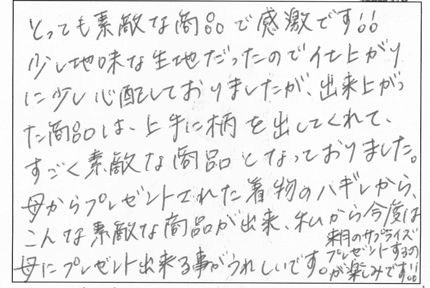 とっても素敵な商品で感激です!!
少し地味な生地だったので仕上がり
に少し心配しておりましたが、出来上がっ
た商品は、上手に柄を出してくれて、
すごく素敵な商品となっておりました。
母からプレゼントされた着物のハギレから、
こんな素敵な商品が出来、私から今度は
母にプレゼント出来る事がうれしいです。
来月のサプライズ
プレゼントするの
が楽しみです!!